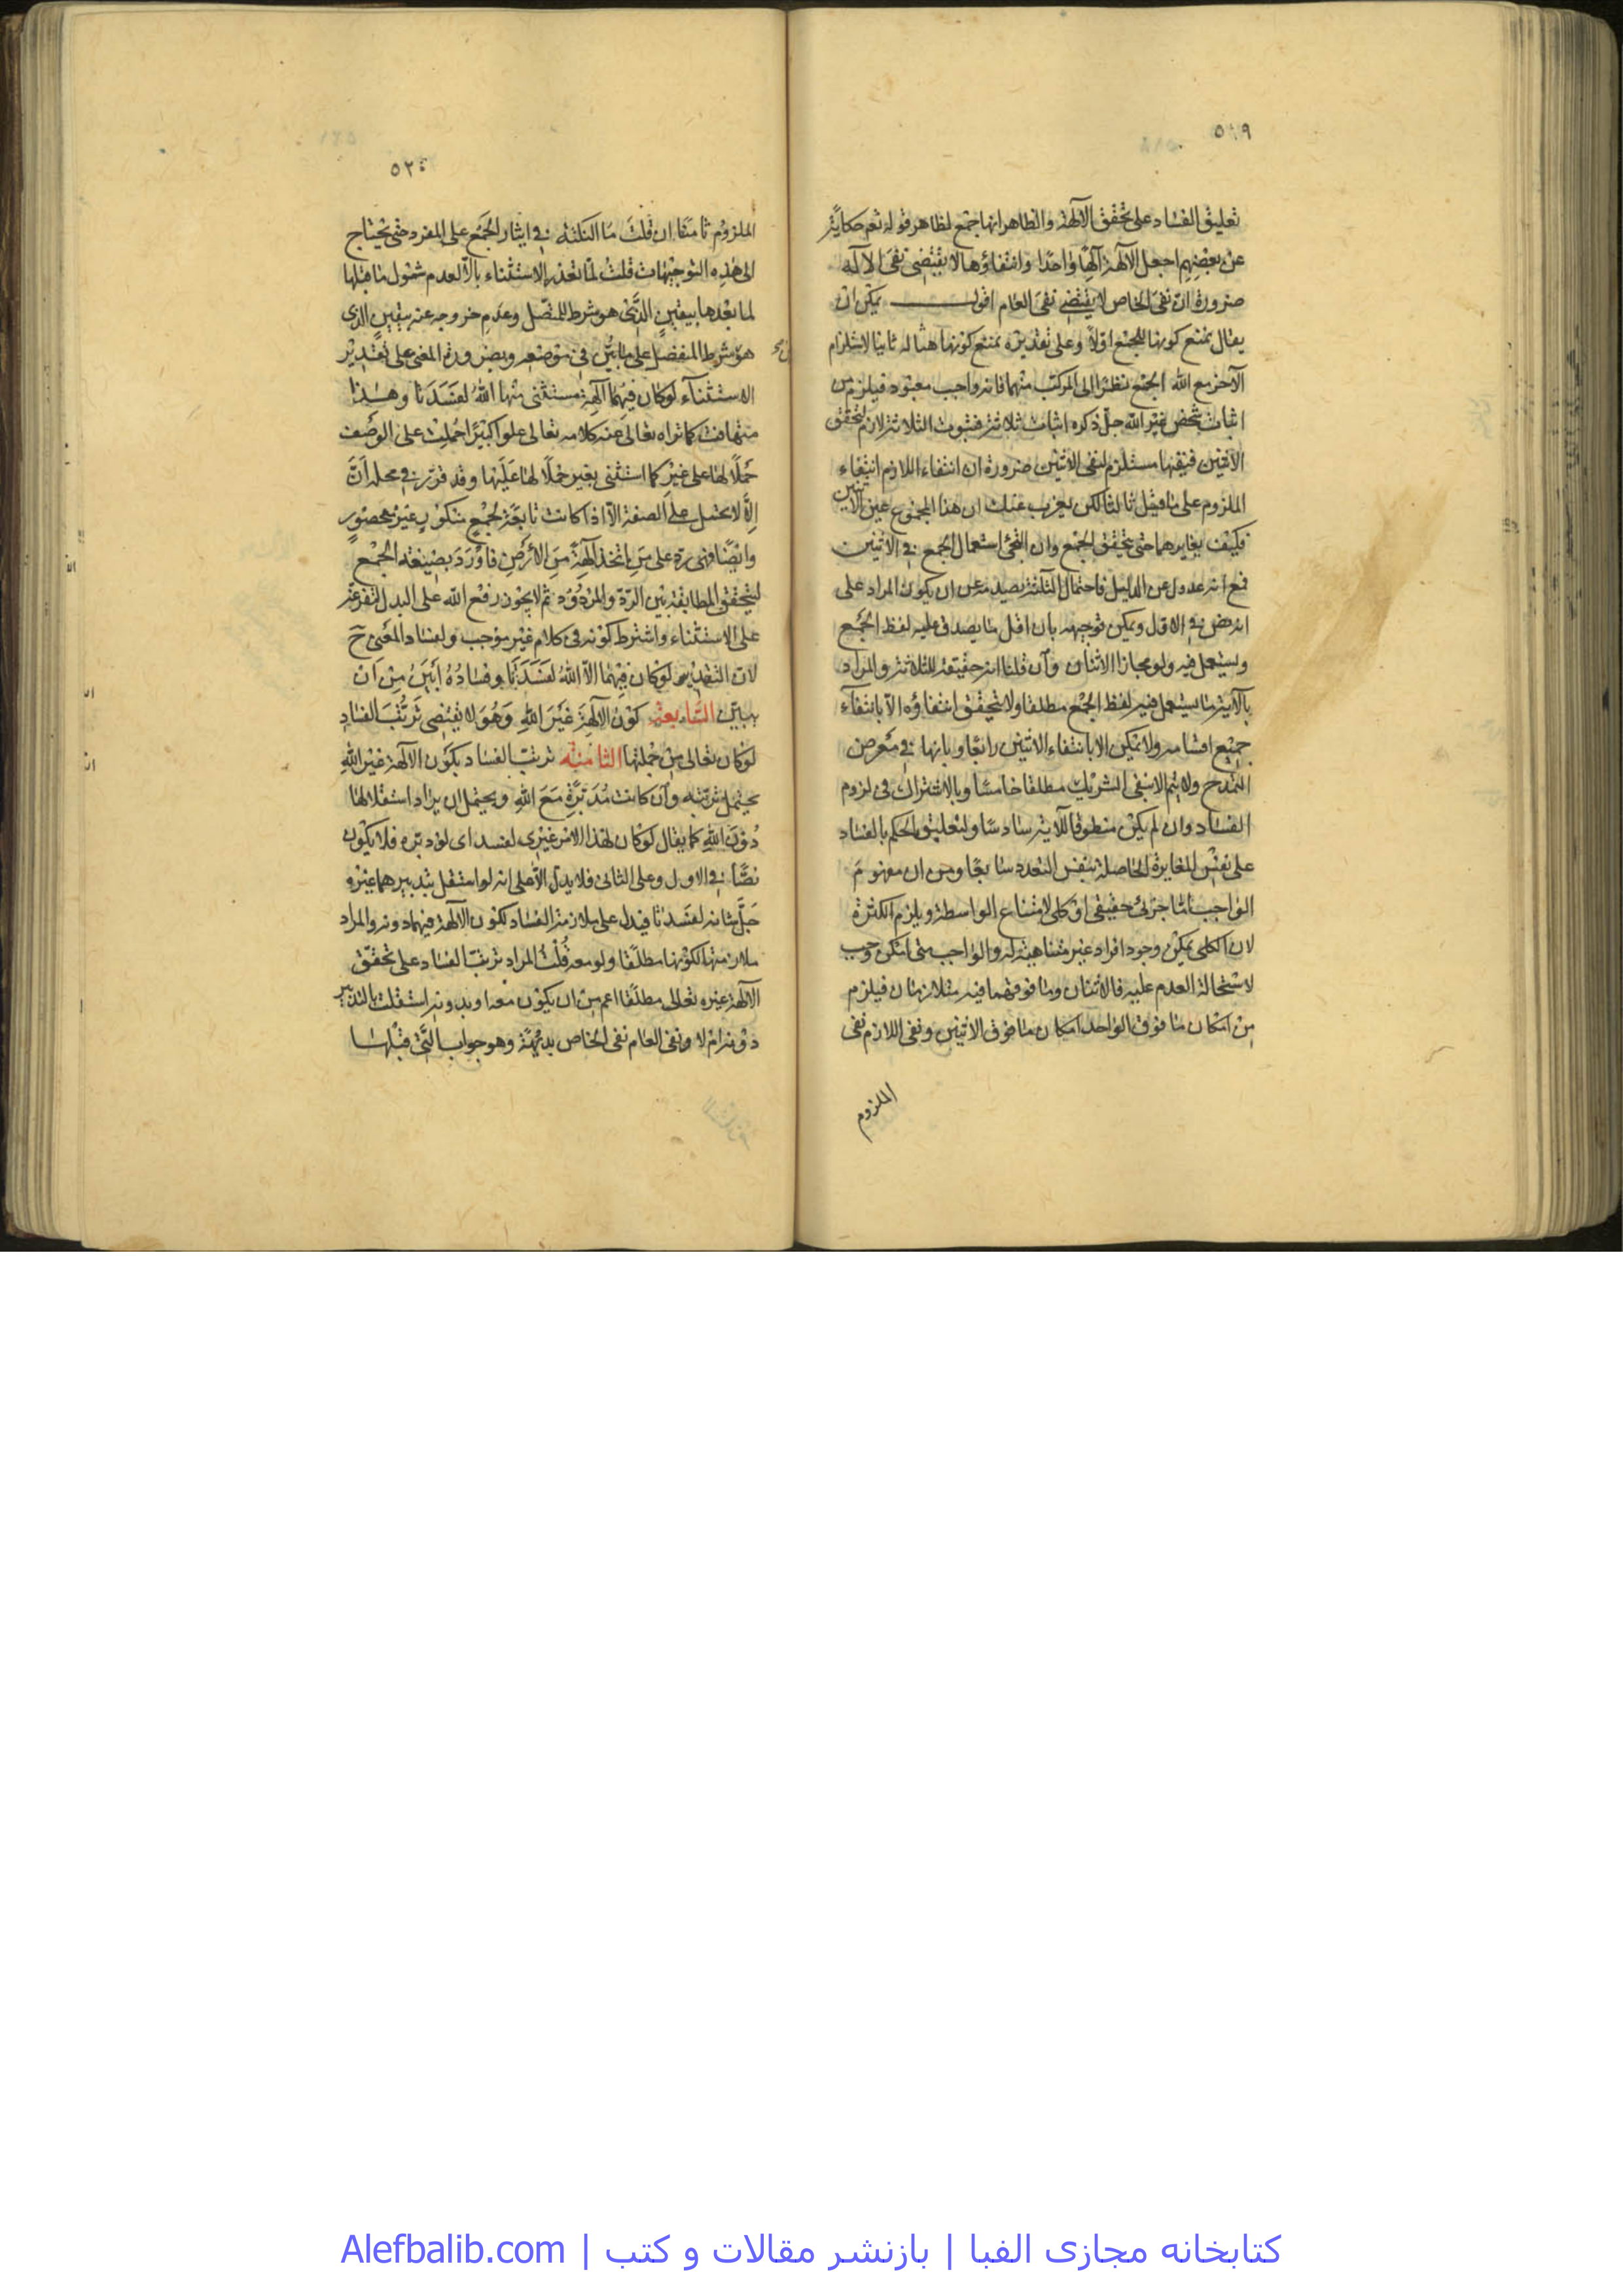 ٥١٩
تعليق الفساد على تحقق الآلهة والظاهر انها جمع لظاهر قوله تعم حكاية
عن بعضهم اجعل الآلهة آلهًا واحدًا وانتفاؤها لا يقتضى نفى الاله
ضرورة ان نفى الخاص لا يقتضى نفى العام اقول يمكن ان
يقال يمنع كونها للجمع اولاً وعلى تقديره نمنع كونها هنا له ثانيا لاستلزام
الآخر مع الله الجمع نظرا الى المركب منهما فانه واجب معبود فيلزم من
اثبات شخص غير الله جل ذكره اثبات ثلاثة فثبوت الثلاثة لازم لتحقق
الاثنين فنفيها مستلزم لنفى الاثنين ضرورة ان انتفاء اللازم انتفاء
الملزوم على ما قيل ثالثا لكن يعزب عنك ان هذا المجموع عين الاثنين
فكيف يغايرهما حتى يتحقق الجمع وان التجئ استعمال الجمع فى الاثنين
فمع انه عدول عن الدليل فاحتمال الثلثة يصيد من ان يكون المراد على
انه نص فى الاول ويمكن توجيهه بان اقل ما يصدق عليه لفظ الجمع
ويستعمل فيه ولو مجازا الاثنان وان قلنا انه حقيقة للثلاثة والمراد
بالآية ما يستعمل فيه لفظ الجمع مطلقا ولا يتحقق انتفاؤه الا بانتفاء
جميع اقسامه ولا يمكن الا بانتفاء الاثنين رابعًا وبانها فى معرض
التمدح ولا يتم الا بنفى الشريك مطلقا خامسًا وبالاشتراك فى لزوم
الفساد وان لم يكن منطوقا للآية سادسًا ولتعليق الحكم بالفساد
على نفس المغايرة الحاصلة بنفس التعدد سابعًا ومن ان مفهوم
الواجب امّا جزئى حقيقى او كلى لامتناع الواسطة ويلزم الكثرة
لان الكلى يمكن وجود افراد غير متناهية له والواجب متى امكن وجب
لاستحالة العدم عليه فالاثنان وما فوقهما فيه متلازمان فيلزم
من امكان ما فوق الواحد امكان ما فوق الاثنين ونفى اللازم نفى
الملزوم
٥٢٠
الملزوم ثامنًا ان قلت ما النكتة فى ايثار الجمع على المفرد حتى تحتاج
الى هذه التوجيهات قلت لما تعذر الاستثناء بالّا لعدم شمول ما قبلها
لما بعدها بيقين الذى هو شرط للمتصل وعدم خروجه عنه بيقين الذى
هو شرط المنفصل على ما بيّن فى موضعه وبضرورة المعنى على تقدير
الاستثناء لو كان فيهما آلهة مستثنى منها الله لفسدتا وهذا
متهافت كما تراه تعالى عنه كلامه تعالى علوا كبيرًا حملت على الوصف
حملًا لها على غير كما استثنى بغير حملًا لها عليها وقد قرر فى محله انّ
الّا لا تحمل على الصفة الا اذا كانت تابعة لجمع منكور غير محصور
وايضًا فهى رد على من اتخذ آلهة من الارض فاورد بصيغة الجمع
ليتحقق المطابقة بين الردّ والمردود ثم لا يجوز رفع الله على البدل لتفرعه
على الاستثناء واشترط كونه فى كلام غير موجب ولفساد المعنى ح
لان التقدير لو كان فيهما الّا الله لفسدتا وفساده ابين من ان
يبيّن السابعة كون الآلهة غير الله وهو لا يقتضى ترتب الفساد
لو كان تعالى من جملتها الثامنة ترتب الفساد بكون الآلهة غير الله
يحتمل ترتبه وان كانت مدبّرة مع الله ويحتمل ان يراد استقلالها
دون الله كما يقال لو كان لهذا الامر غيرى لفسد اى لو دبره فلا يكون
نصًّا فى الاول وعلى الثانى فلا يدل الّا على انه لو استقل بتدبيرهما غيره
جلّ شانه لفسدتا فيدل على ملازمة الفساد لكون الآلهة فيهما دونه والمراد
ملازمتها لكونها مطلقًا ولو معه قلت المراد ترتب الفساد على تحقق
الآلهة غيره تعالى مطلقا اعم من ان يكون معه او بدونه استقلت بالتدبير
دونه ام لا ونفى العام نفى الخاص بديهة وهو جواب التى قبلها
كتابخانه مجازى الفبا | بازنشر مقالات و كتب | Alefbalib.com